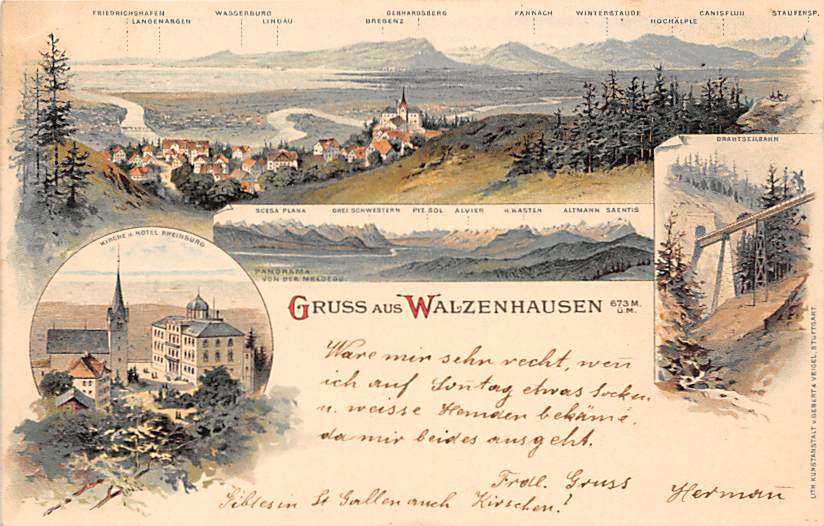 FRIEDRICHSHAFEN WASSERBURG GEBHARDSBERG FANNACH WINTERSTAUDE CANISFLUH STAUFENSP.
LANGENARGEN LINDAU BREGENZ HOCHÄLPLE
DRAHTSEILBAHN
SCESA PLANA DREI SCHWESTERN PIZ SOL ALVIER H. KASTEN ALTMANN SAENTIS
KIRCHE U. HOTEL RHEINBURG
PANORAMA
VON DER MELDEGG
GRUSS AUS WALZENHAUSEN 673 M.
Ü.M.
Wäre mir sehr recht, weñ
ich auf Soñtag etwas Socken
u. weisse Hemden bekäme,
da mir beides ausgeht.
Frdl. Gruss
Herman
Gibts in St Gallen auch Kirschen!
LITH. KUNSTANSTALT v. GEBERT & VEIGEL, STUTTGART.